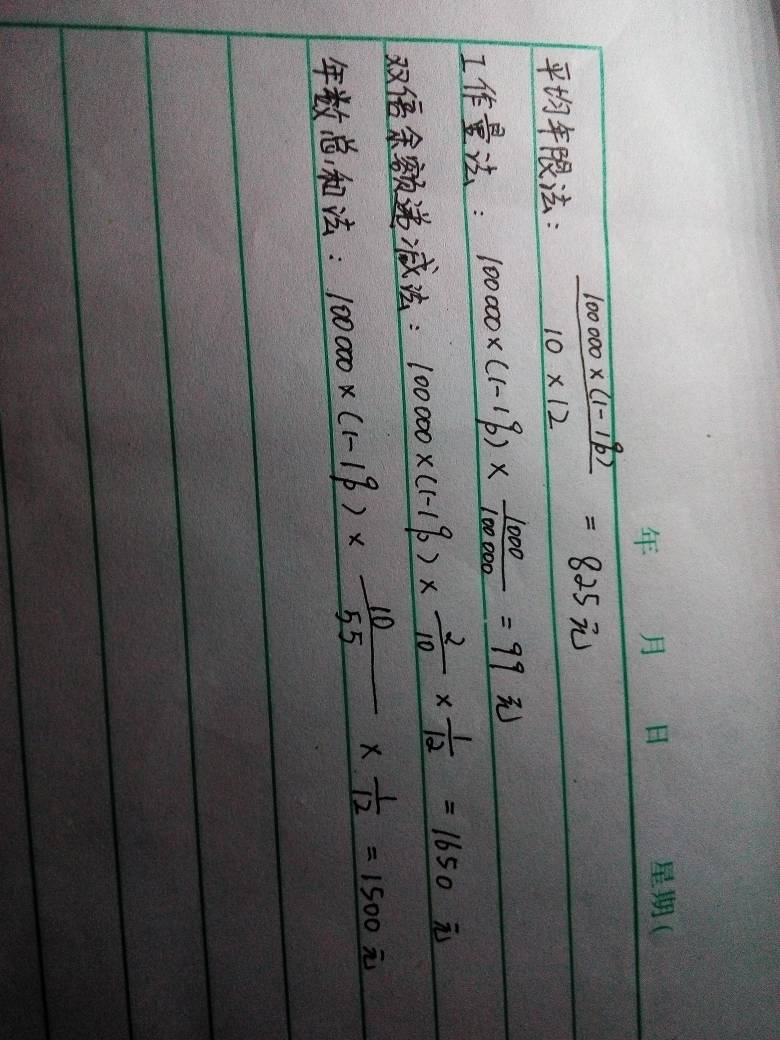 年 月 日 星期(
平均年限法: 100000×(1-1%) / 10×12 = 825元
工作量法: 100000×(1-1%)× 1000/100000 = 99元
双倍余额递减法: 100000×(1-1%)× 2/10 × 1/12 = 1650元
年数总和法: 100000×(1-1%)× 10/55 × 1/12 = 1500元